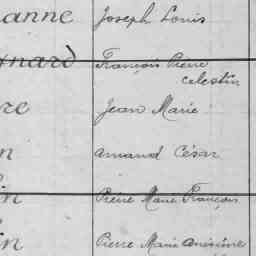 anne Joseph Louis
rnard François Pierre
celestin
re Jean Marie
n Amand César
in Pierre Marie François
in Pierre Marie